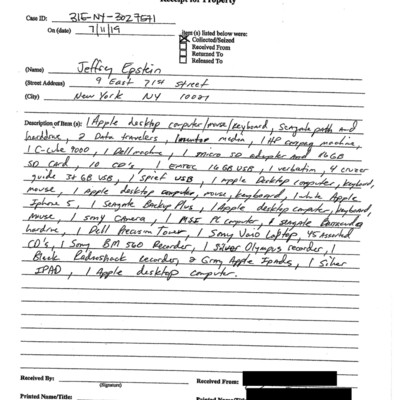 Receipt for Property
Case ID: 31E-NY-3027571
On (date) 7/11/19
item(s) listed below were:
Collected/Seized
Received From
Returned To
Released To
(Name) Jeffrey Epstein
(Street Address) 9 East 71st Street
(City) New York NY 10021
Description of Item(s): 1 Apple desktop computer/mouse/keyboard, Seagate and
harddrive, 2 Data travelers, media, 1 HP compaq machine,
1 C-cube 9000, 1 Dell machine, 1 micro SD adapter and 16GB
SD card, 10 CD's, 1 EMTEC 16 GB USB, 1 verbatim, 4 cruzer
guide 32 GB USB, 1 USB, 1 Apple Desktop computer, keyboard,
mouse, 1 Apple desktop computer, mouse, keyboard, 1 white Apple
Iphone 5, 1 Seagate Backup Plus, 1 Apple desktop computer, keyboard,
mouse, 1 Sony camera, 1 PC computer, 1 Seagate Barracuda
hardrive, 1 Dell Precision Tower, 1 Sony Vaio Laptop, 45 Assorted
CD's, 1 Sony BM 560 Recorder, 1 Silver Olympus recorder, 1
Black Radioshack recorder, 2 Gray Apple Ipads, 1 Silver
IPAD, 1 Apple desktop computer.
Received By:
(Signature)
Received From:
Printed Name/Title:
Printed Name/Title: